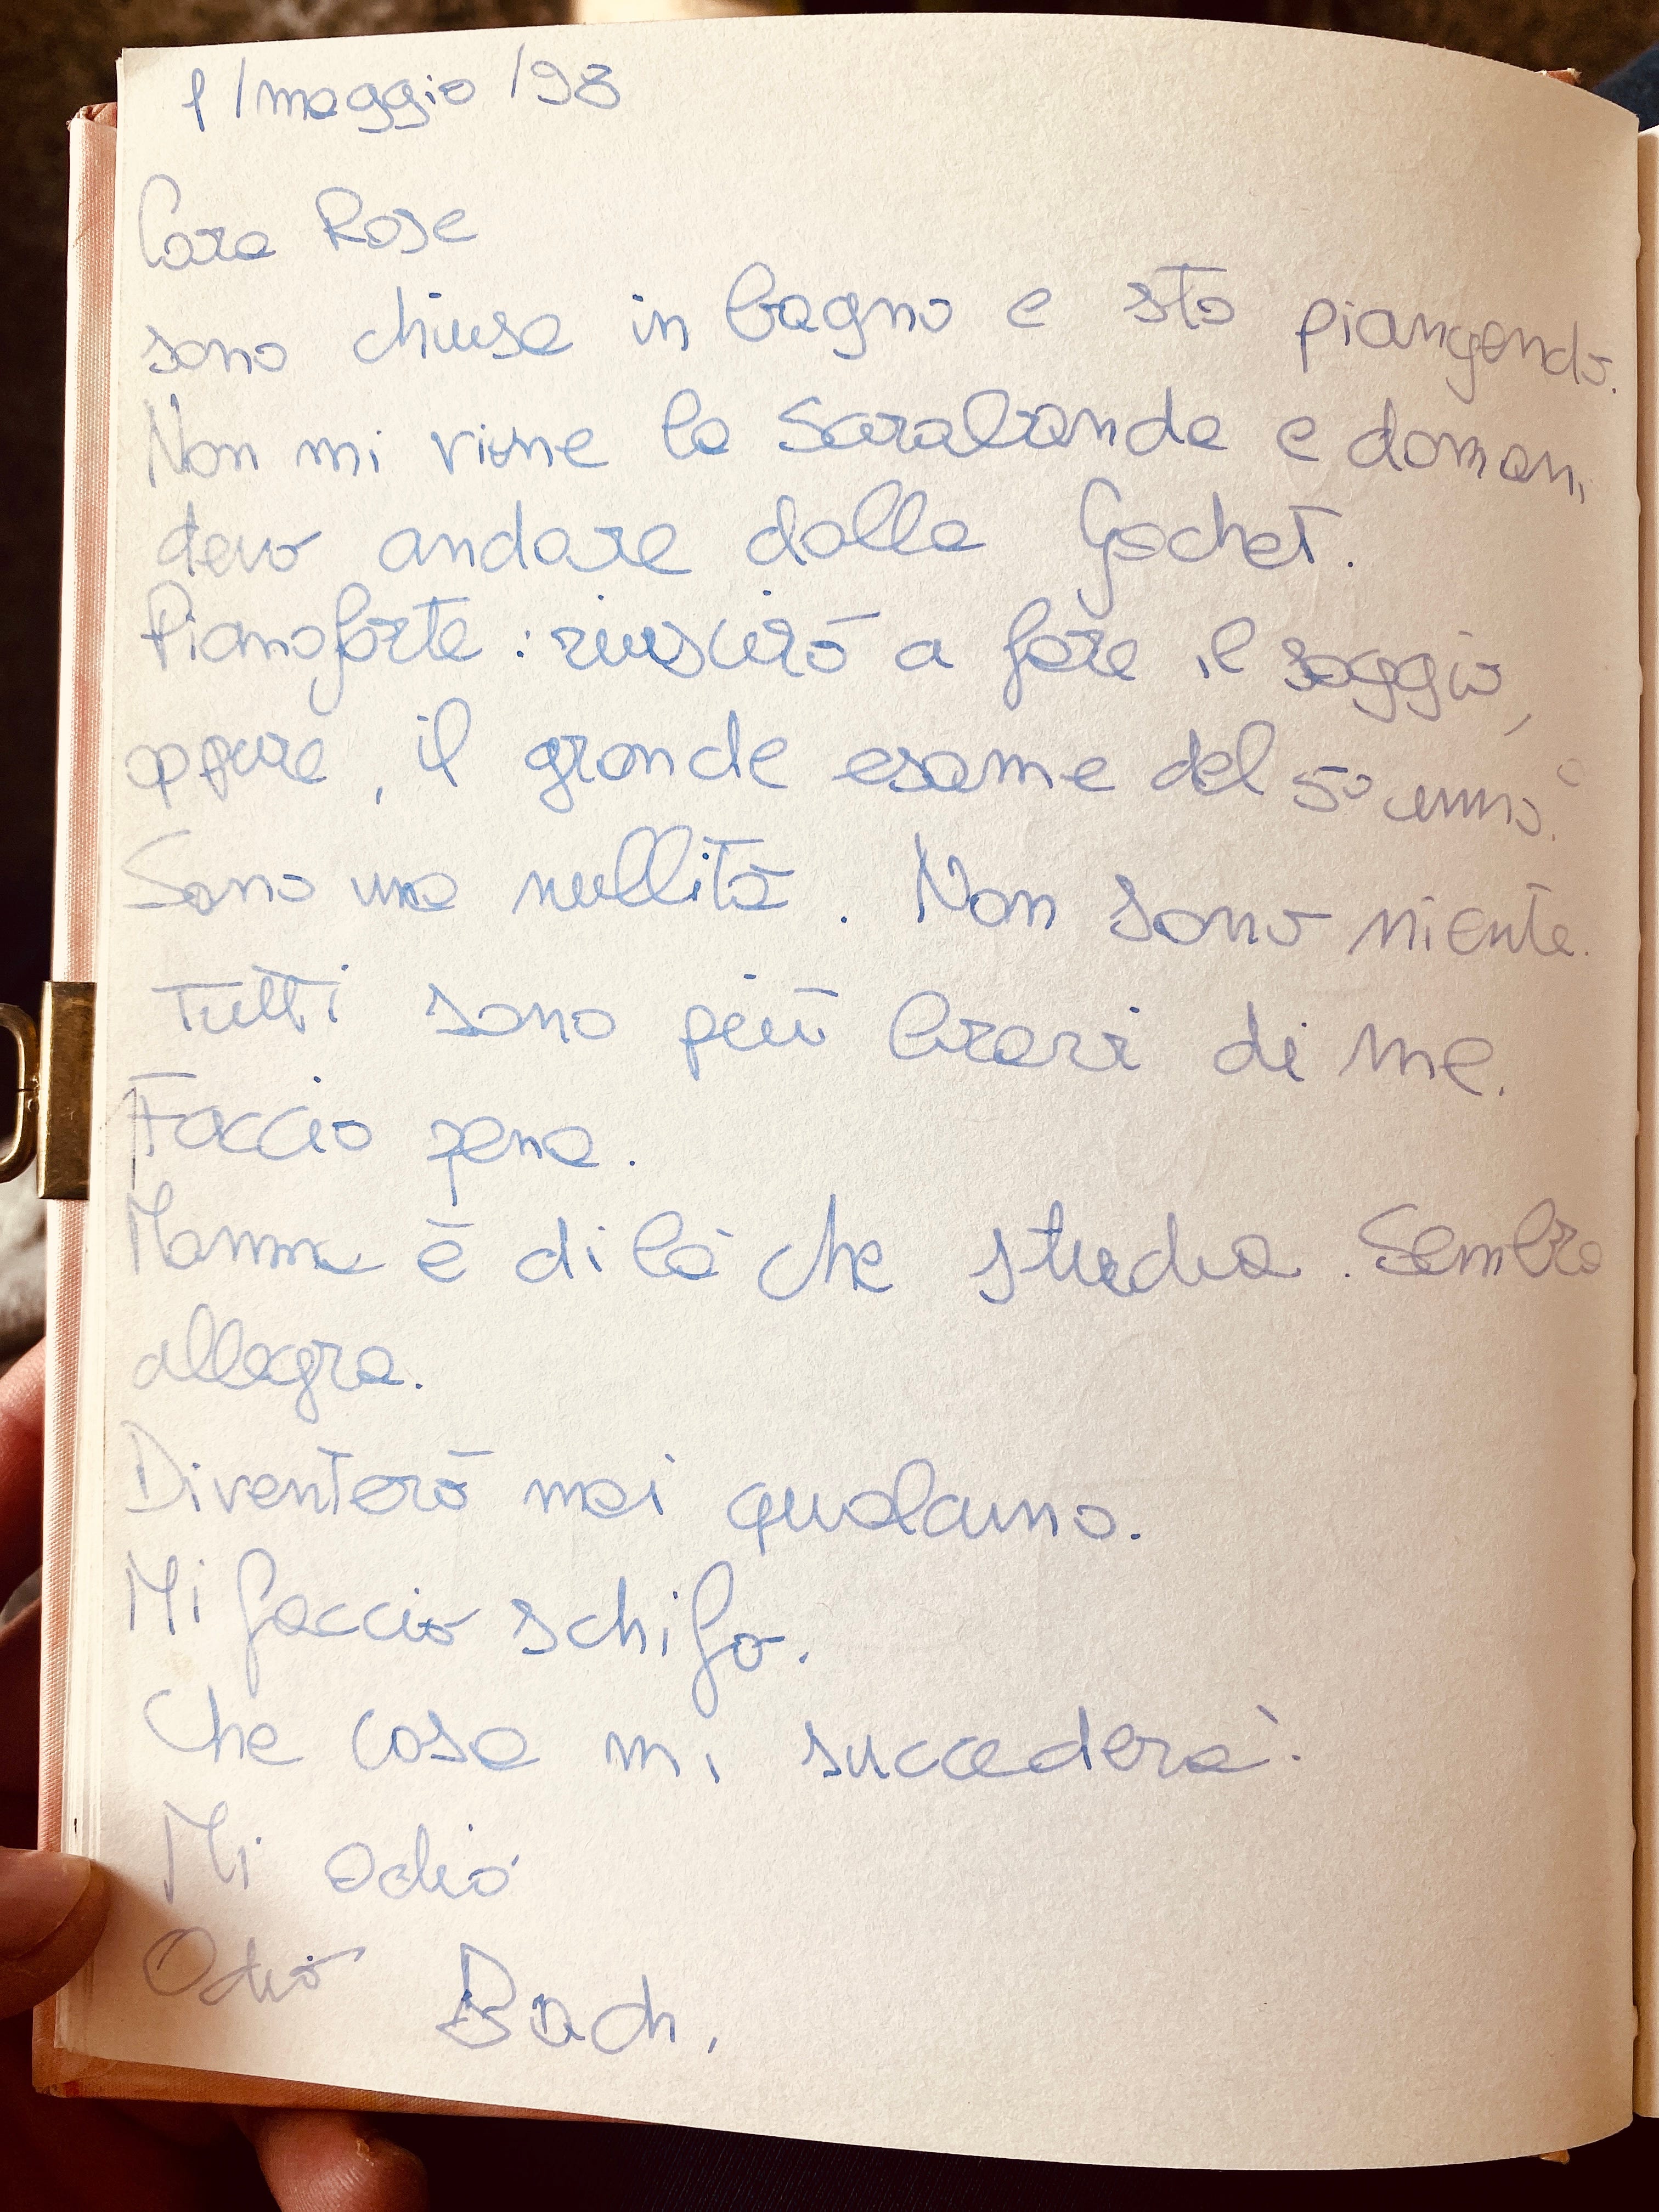 1/maggio/98
Cara Rose
sono chiusa in bagno e sto piangendo.
Non mi viene la Sarabanda e domani
devo andare dalla Gachet.
Pianoforte: riuscirò a fare il saggio,
oppure, il grande esame del 5° anno?
Sono una nullità. Non sono niente.
Tutti sono più bravi di me.
Faccio pena.
Mamma è di là che studia. Sembra
allegra.
Diventerò mai qualcuno.
Mi faccio schifo.
Che cosa mi succederà?
Mi odio
Odio Bach.